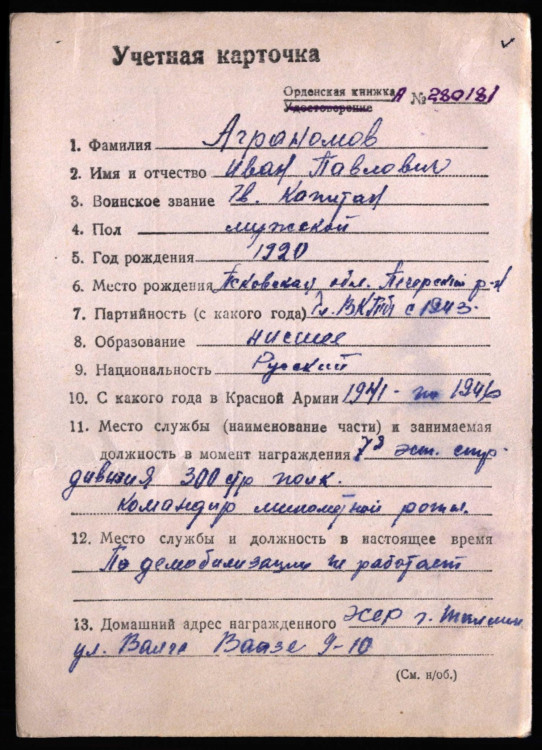 Учетная карточка
Орденская книжка А № 280181
Удостоверение
1. Фамилия Аграномов
2. Имя и отчество Иван Павлович
3. Воинское звание Гв. Капитан
4. Пол мужской
5. Год рождения 1920
6. Место рождения Псковская обл. Печерский р-н
7. Партийность (с какого года) Чл. ВКПб с 1943
8. Образование низшее
9. Национальность Русский
10. С какого года в Красной Армии 1941 - по 1946
11. Место службы (наименование части) и занимаемая
должность в момент награждения 7я эст. стр.
дивизия 300 стр полк.
командир минометной роты.
12. Место службы и должность в настоящее время
По демобилизации не работает
13. Домашний адрес награжденного ЭССР г. Таллин
ул. Вааза 9-10
(См. н/об.)